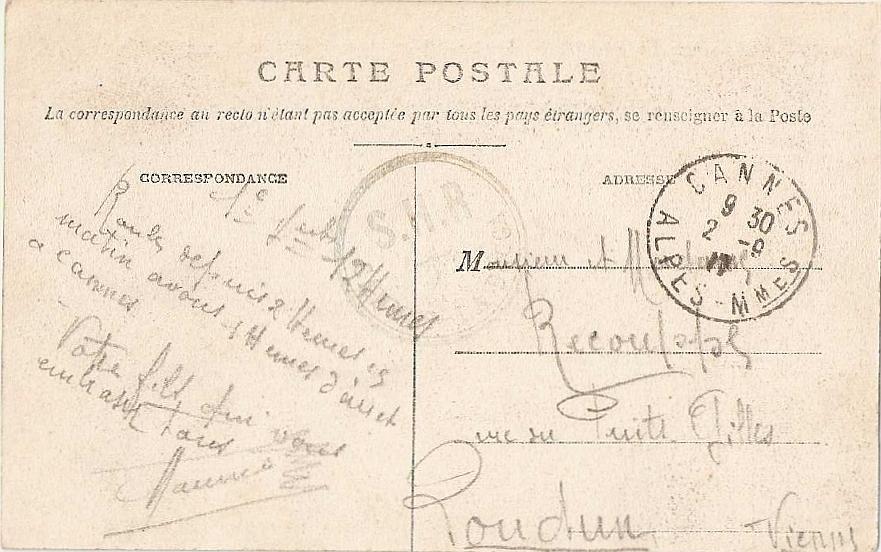 CARTE POSTALE
La correspondance au recto n'étant pas acceptée par tous les pays étrangers, se renseigner à la Poste
CORRESPONDANCE
12 Heures
depuis 2 Heures 15
matin avons 4 Heures d'arret
a cannes
Votre fils qui vous
embrasse tous
Maurice
ADRESSE
CANNES
9 30
2 -9
ALPES-MMES
Monsieur et Madame
rue du Puits Gilles
Loudun Vienne